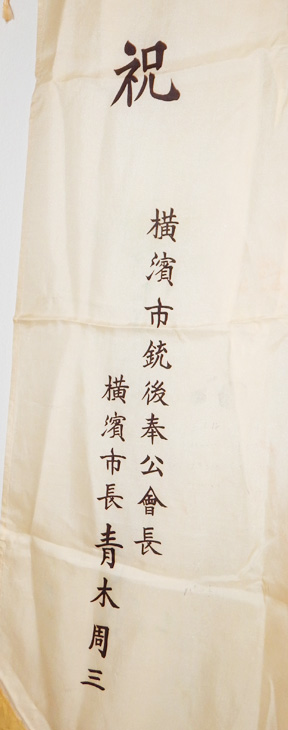 祝
橫濱市銃後奉公會長
橫濱市長青木周三